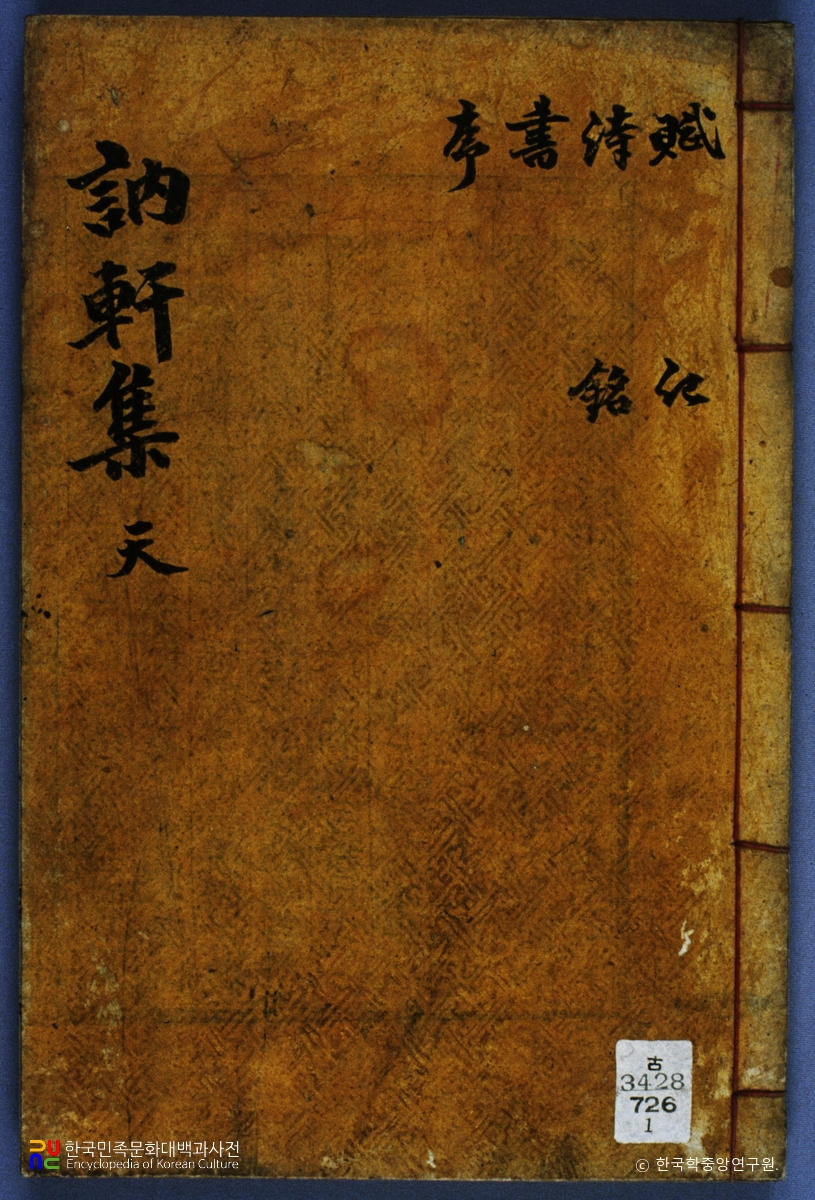 賦 詩 書 序
記 銘
訥軒集 天
古
3428
726
1
한국민족문화대백과사전
Encyclopedia of Korean Culture
© 한국학중앙연구원.